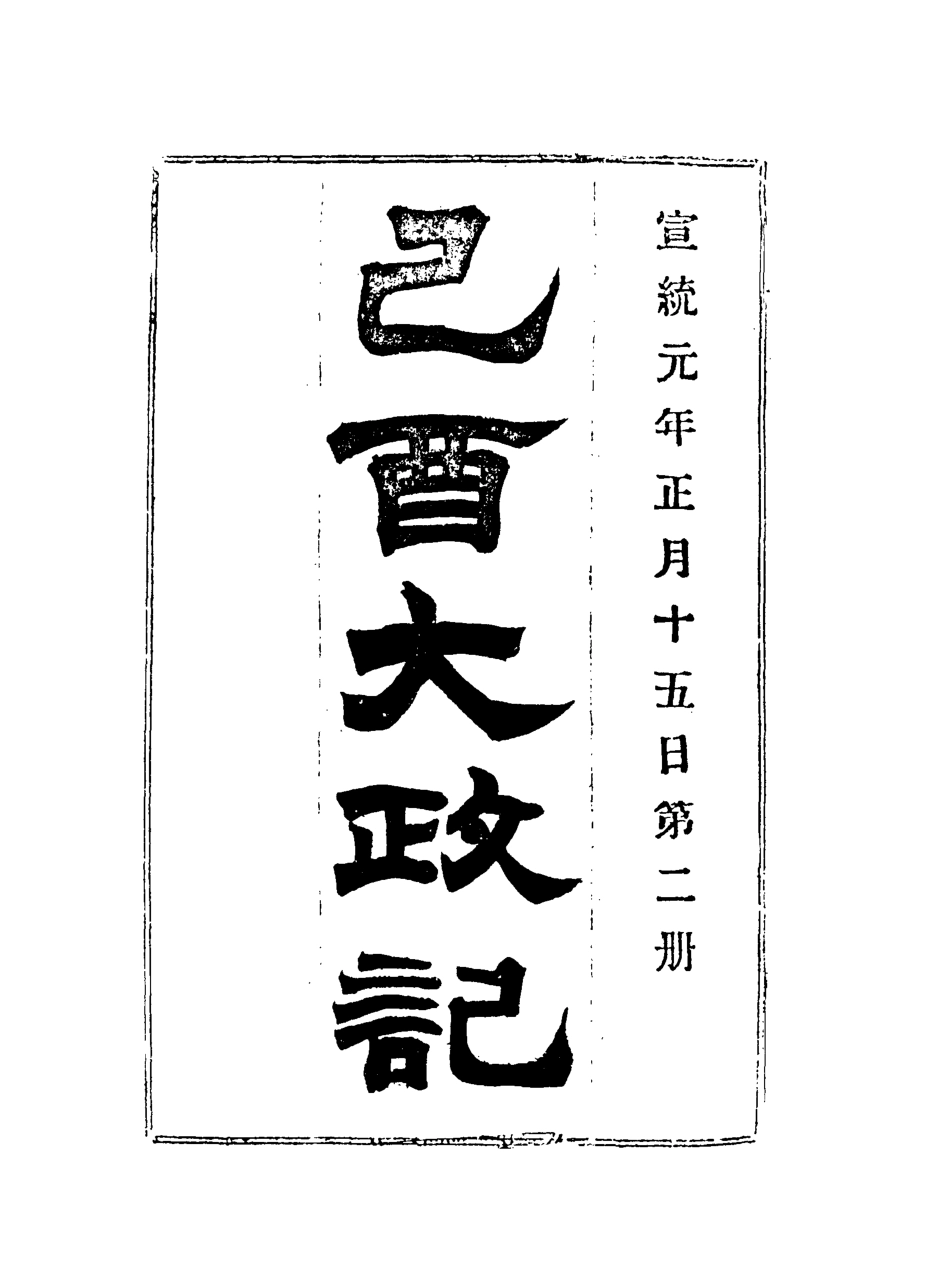 宣統元年正月十五日第二册
己酉大政記